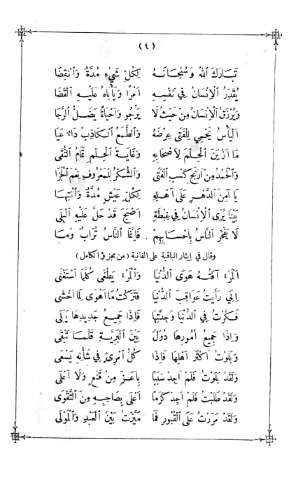 (٤)
تَبَارَكَ ٱللهُ وَسُبْحَانَهُ لِكُلِّ شَيْءٍ مُدَّةٌ وَٱنْقِضَا
يُقَدِّرُ ٱلْإِنْسَانُ فِي نَفْسِهِ أَمْرًا وَيَأْبَاهُ عَلَيْهِ ٱلْقَضَا
وَيُرْزَقُ ٱلْإِنْسَانُ مِنْ حَيْثُ لَا يَرْجُو وَأَحْيَانًا يُضِلُّ ٱلرَّجَا
ٱلْيَأْسُ يَحْمِي لِلْفَتَى عِرْضَهُ وَٱلطَّمَعُ ٱلْكَاذِبُ دَاءٌ عَيَا
مَا أَزْيَنَ ٱلْحِلْمَ لِأَصْحَابِهِ وَغَايَةُ ٱلْحِلْمِ تَمَامُ ٱلتُّقَى
وَٱلْحَمْدُ مِنْ أَرْبَحِ كَسْبِ ٱلْفَتَى وَٱلشُّكْرُ لِلْمَعْرُوفِ نِعْمَ ٱلْجَزَا
يَا آمِنَ ٱلدَّهْرِ عَلَى أَهْلِهِ لِكُلِّ عَيْشٍ مُدَّةٌ وَٱنْتِهَا
بَيْنَا يُرَى ٱلْإِنْسَانُ فِي غِبْطَةٍ أَصْبَحَ قَدْ حَلَّ عَلَيْهِ ٱلْبِلَى
لَا يَفْخَرِ ٱلنَّاسُ بِأَحْسَابِهِمْ فَإِنَّمَا ٱلنَّاسُ تُرَابٌ وَمَا
وقال في إيثار الباقية على الفانية (من مجزوء الكامل)
ٱلْمَرْءُ آفَتُهُ هَوَى ٱلدُّنْيَا وَٱلْمَرْءُ يَطْغَى كُلَّمَا ٱسْتَغْنَى
إِنِّي رَأَيْتُ عَوَاقِبَ ٱلدُّنْيَا فَتَرَكْتُ مَا أَهْوَى لِمَا أَخْشَى
فَكَّرْتُ فِي ٱلدُّنْيَا وَجِدَّتِهَا فَإِذَا جَمِيعُ جَدِيدِهَا يَبْلَى
وَإِذَا جَمِيعُ أُمُورِهَا دُوَلٌ بَيْنَ ٱلْبَرِيَّةِ قَلَّمَا تَبْقَى
وَبَلَوْتُ أَكْثَرَ أَهْلِهَا فَإِذَا كُلُّ ٱمْرِئٍ فِي شَأْنِهِ يَسْعَى
وَلَقَدْ بَلَوْتُ فَلَمْ أَجِدْ سَبَبًا بِأَعَزَّ مِنْ قَنَعٍ وَلَا أَعْلَى
وَلَقَدْ طَلَبْتُ فَلَمْ أَجِدْ كَرَمًا أَعْلَى بِصَاحِبِهِ مِنَ ٱلتَّقْوَى
وَلَقَدْ مَرَرْتُ عَلَى ٱلْقُبُورِ فَمَا مَيَّزْتُ بَيْنَ ٱلْعَبْدِ وَٱلْمَوْلَى